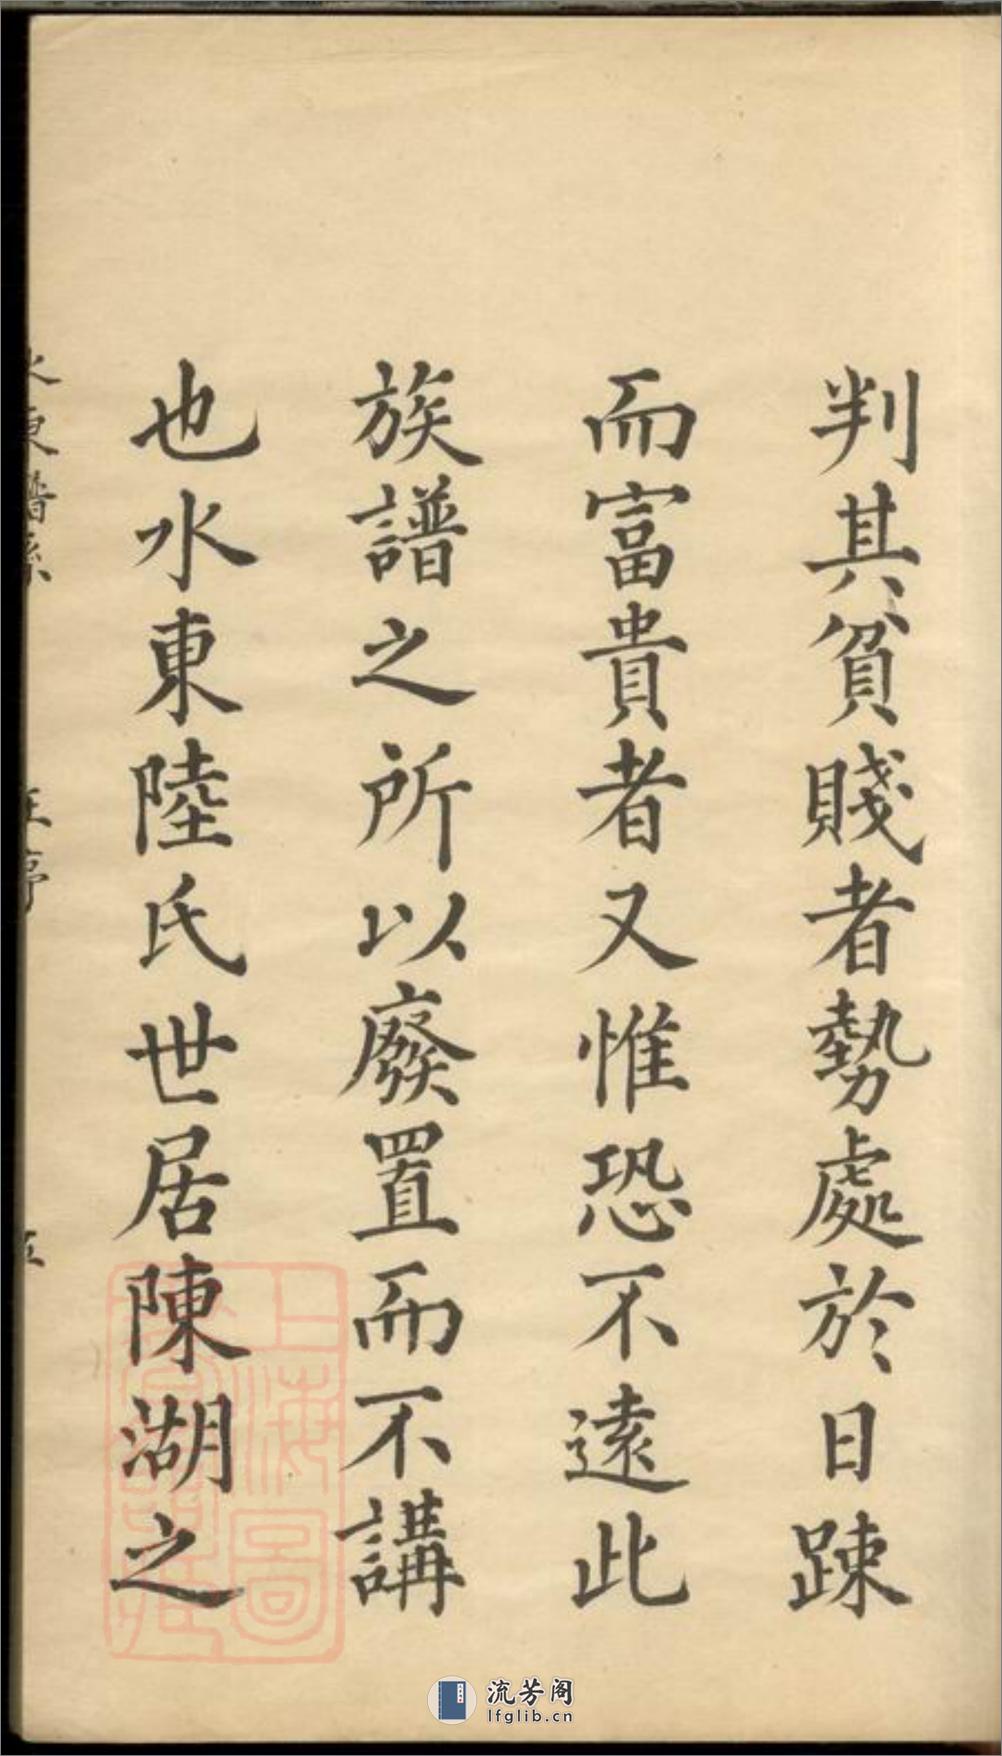 判其貧賤者勢處於日踈
而富貴者又惟恐不遠此
族譜之所以廢置而不講
也水東陸氏世居陳湖之
水東譜系
序
五
上海圖
流芳阁
lfglib.cn